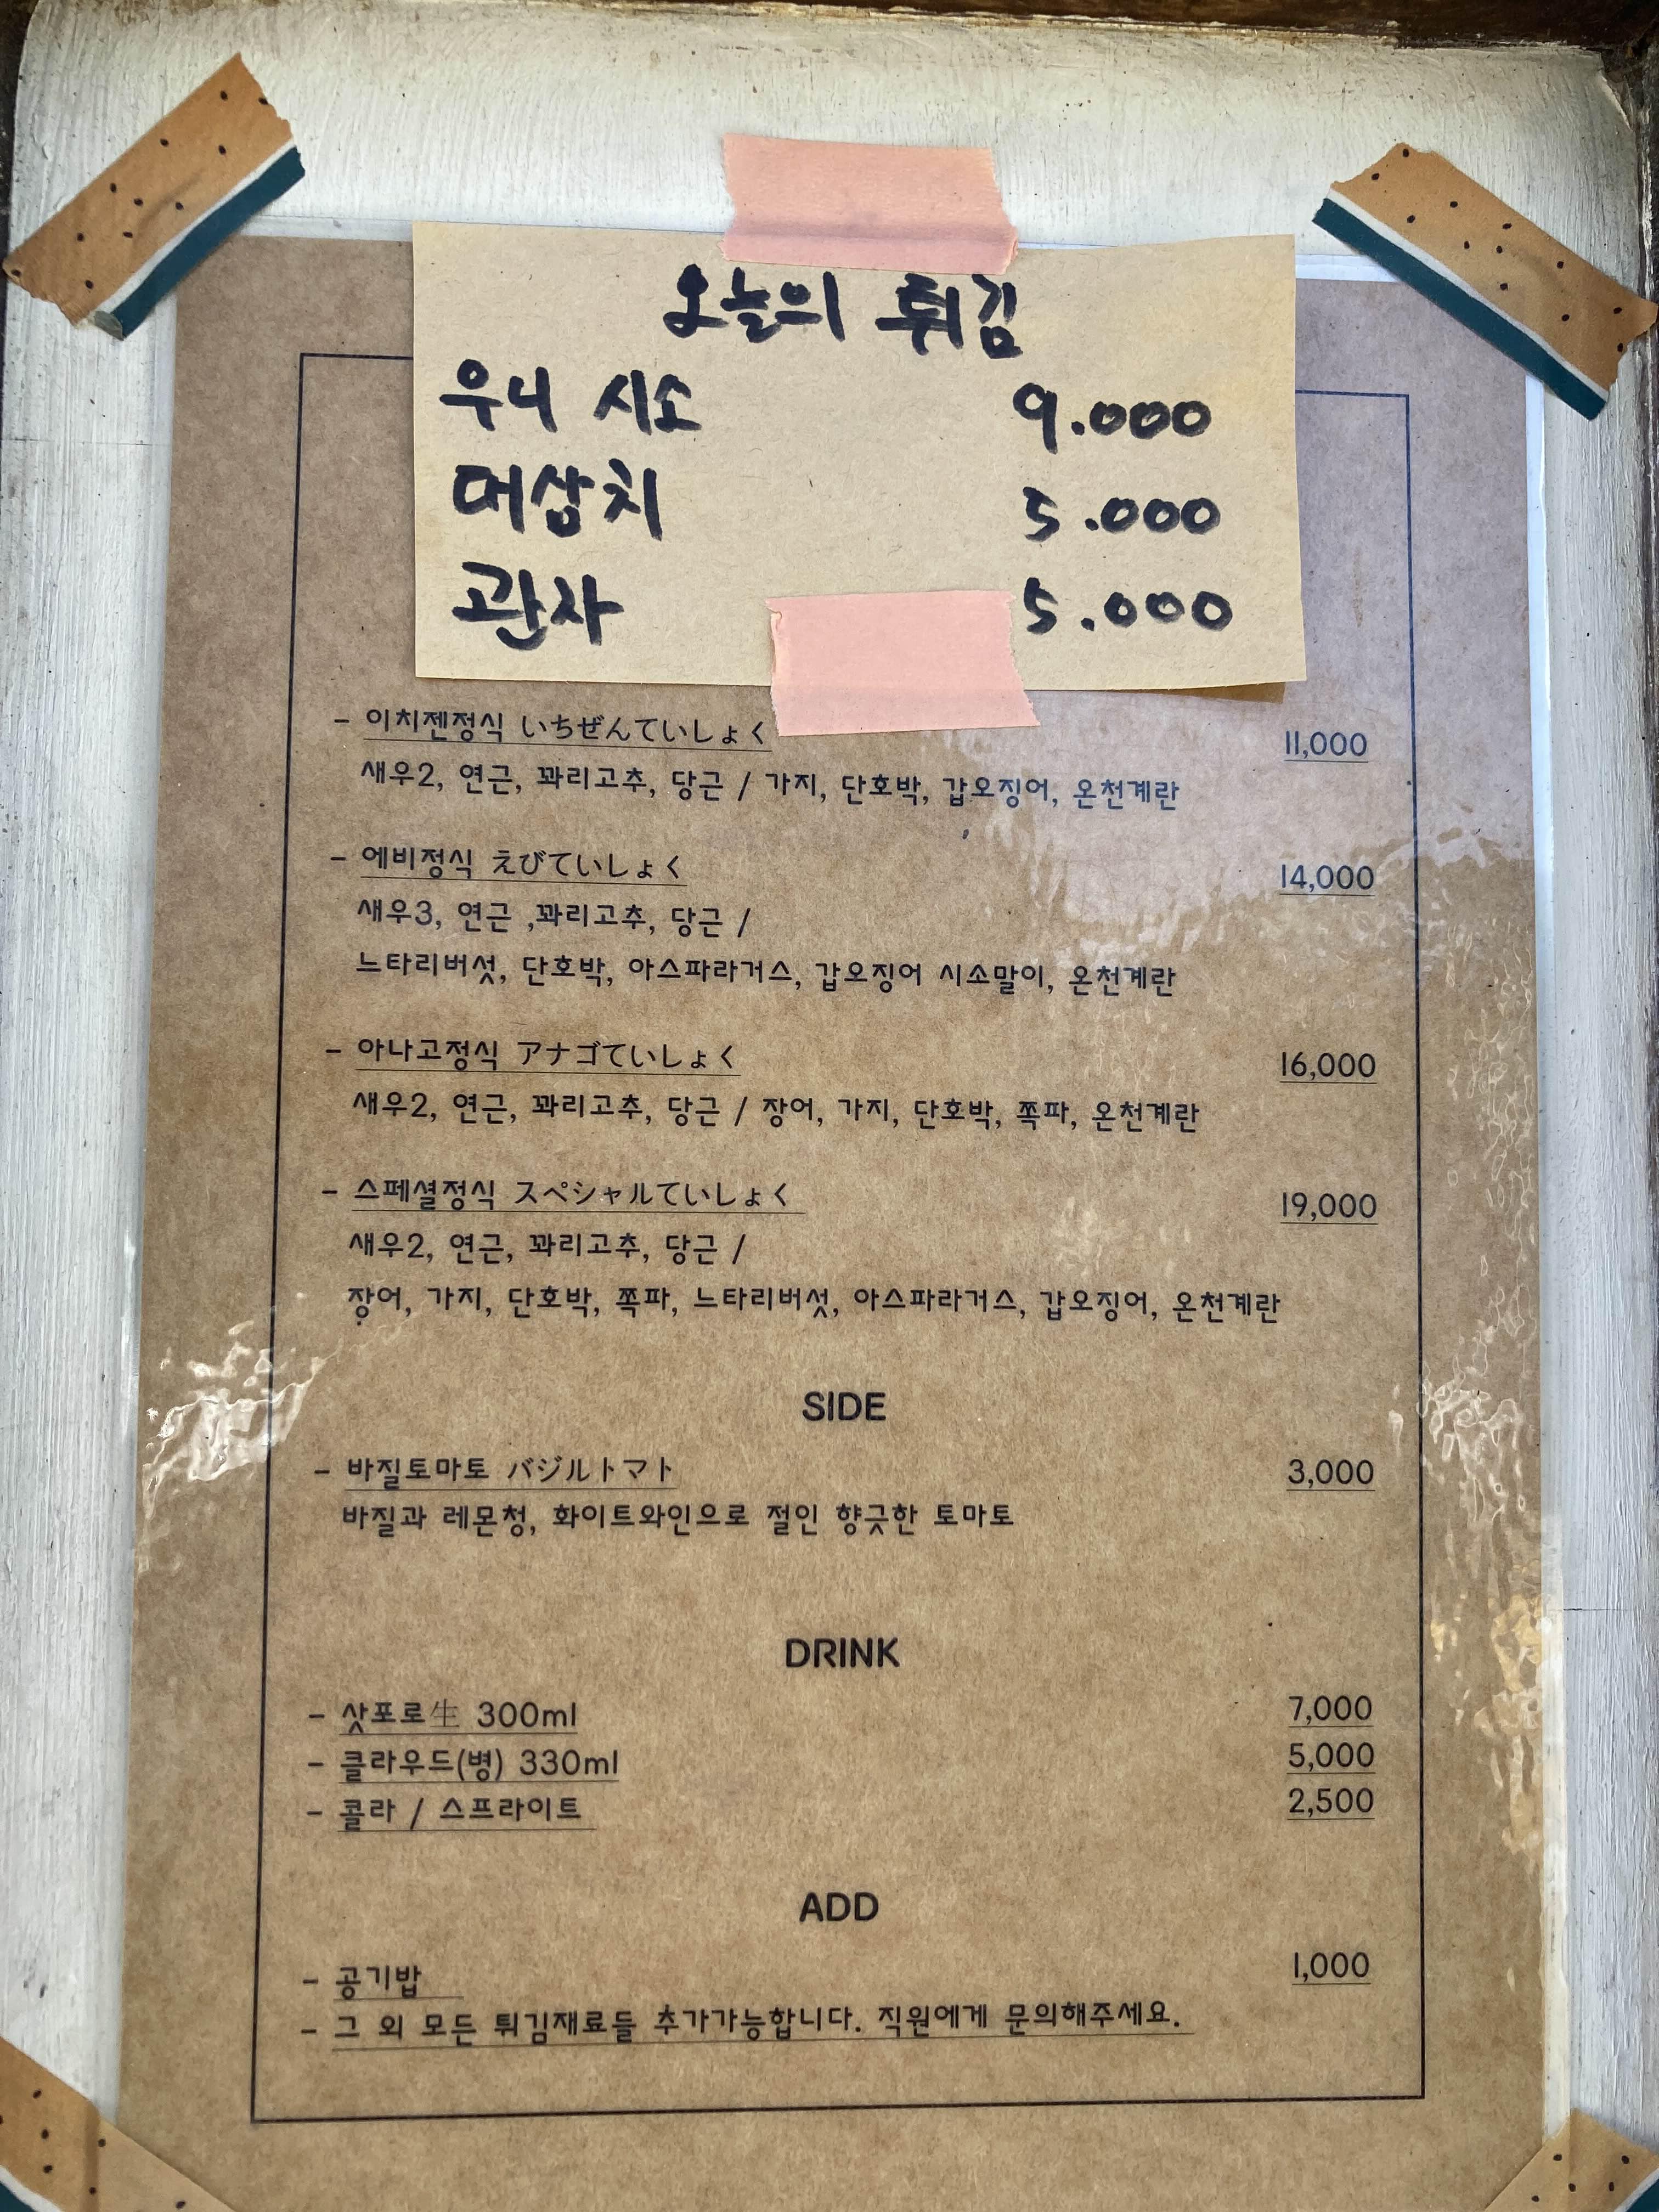 오늘의 튀김
우니 시소 9.000
대삼치 5.000
관자 5.000
- 이치젠정식 いちぜんていしょく 11,000
새우2, 연근, 꽈리고추, 당근 / 가지, 단호박, 갑오징어, 온천계란
- 에비정식 えびていしょく 14,000
새우3, 연근 ,꽈리고추, 당근 /
느타리버섯, 단호박, 아스파라거스, 갑오징어 시소말이, 온천계란
- 아나고정식 アナゴていしょく 16,000
새우2, 연근, 꽈리고추, 당근 / 장어, 가지, 단호박, 쪽파, 온천계란
- 스페셜정식 スペシャルていしょく 19,000
새우2, 연근, 꽈리고추, 당근 /
장어, 가지, 단호박, 쪽파, 느타리버섯, 아스파라거스, 갑오징어, 온천계란
SIDE
- 바질토마토 バジルトマト 3,000
바질과 레몬청, 화이트와인으로 절인 향긋한 토마토
DRINK
- 삿포로生 300ml 7,000
- 클라우드(병) 330ml 5,000
- 콜라 / 스프라이트 2,500
ADD
- 공기밥 1,000
- 그 외 모든 튀김재료들 추가가능합니다. 직원에게 문의해주세요.